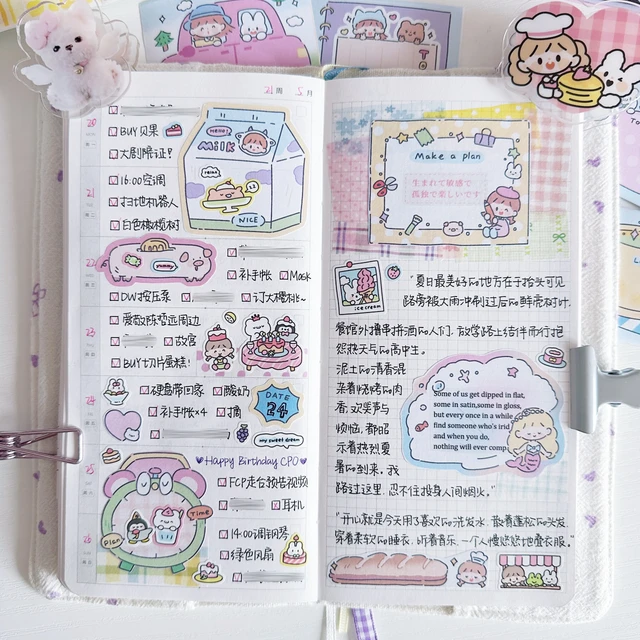 21周 5月
20
BUY贝果
大剧院证
Hello!
Milk
relax
NICE
21
16:00空调
扫地机器人
白色橄榄树
22
yummy
补手帐
Mask
DW按压泵
订大樱桃~
23
爱敬陈蛰远周边
故宫
BUY切片蛋糕!
24
硬盘带回家
酸奶
补手帐x4
DATE
24
my sweet dream
25
Happy Birthday CPO
FCP走台预告视频
耳机
Time
Plan
14:00调钢琴
26
绿色风扇
Make a plan
生まれて敏感で
孤独で楽しいです
ice cream
"夏日最美好的地方在于抬头可见
路旁被大雨冲刷过后的鲜亮树叶.
餐馆外撸串拼酒的人们. 放学路上结伴而行抱
怨热天气的高中生.
泥土的清香混
杂着烧烤的肉
香. 欢笑声与
烦恼. 都昭
示着热烈夏
暑的到来. 我
路过这里. 忍不住投身人间烟火."
Some of us get dipped in flat,
some in satin,some in gloss,
but every once in a while
find someone who's irid
and when you do,
nothing will ever comp
"开心就是今天用了喜欢的洗发水. 散着蓬松的头发.
穿着柔软的睡衣. 听着音乐. 一个人慢悠悠地叠衣服."